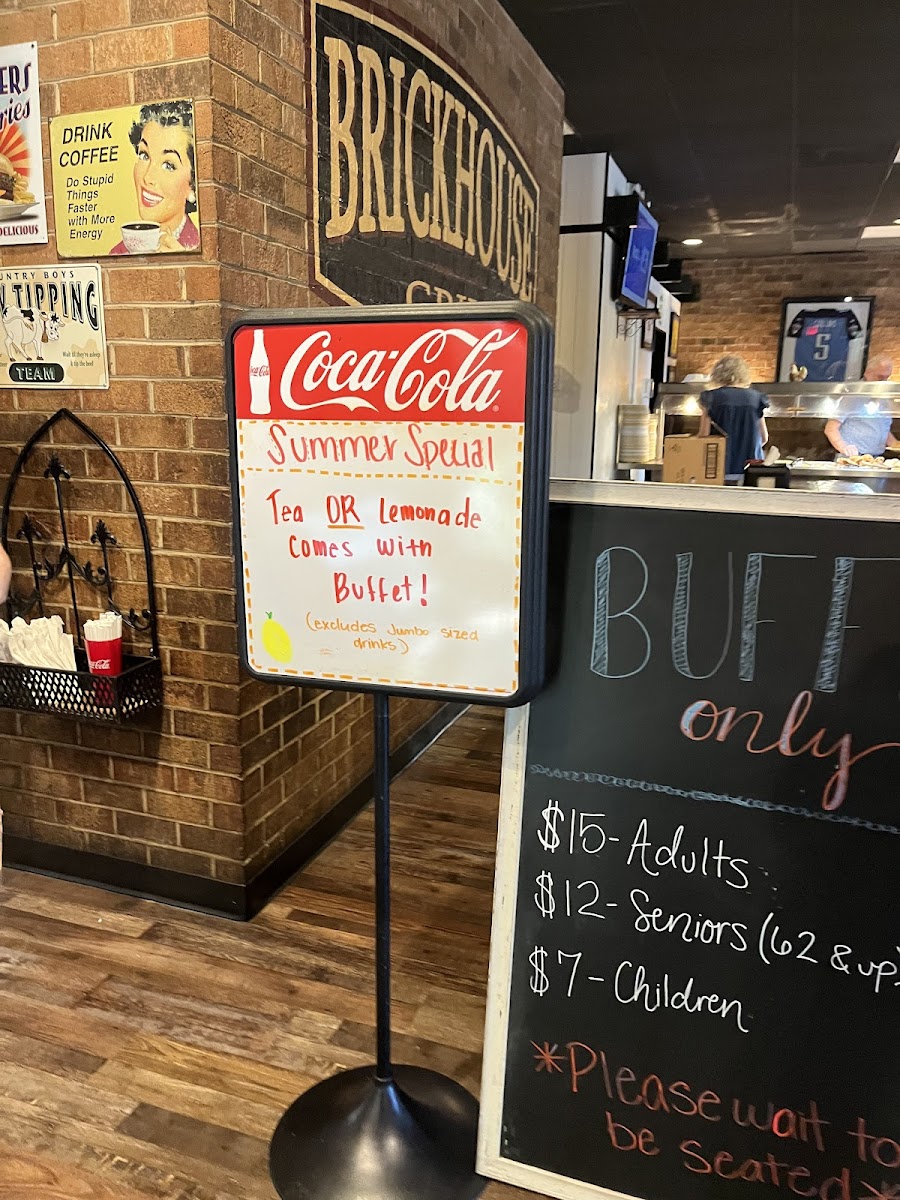 ERS
ries
DELICIOUS
DRINK
COFFEE
Do Stupid
Things
Faster
with More
Energy
UNTRY BOYS
TIPPING
TEAM
BRICKHOUSE
Coca-Cola
Coca-Cola
Summer Special
Tea OR Lemonade
Comes with
Buffet!
(excludes Jumbo sized
drinks)
Coca-Cola
5
BUFF
only
$15-Adults
$12-Seniors (62 & up)
$7-Children
*Please wait to
be seated*